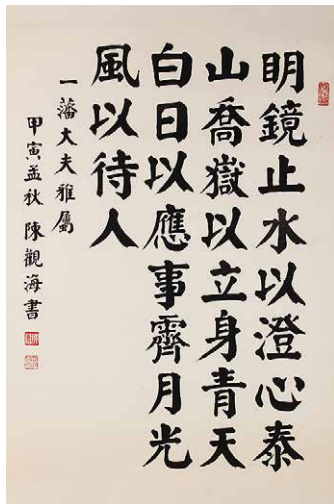 明鏡止水以澄心泰
山喬嶽以立身青天
白日以應事霽月光
風以待人
一藩大夫雅屬
甲寅孟秋陳觀海書